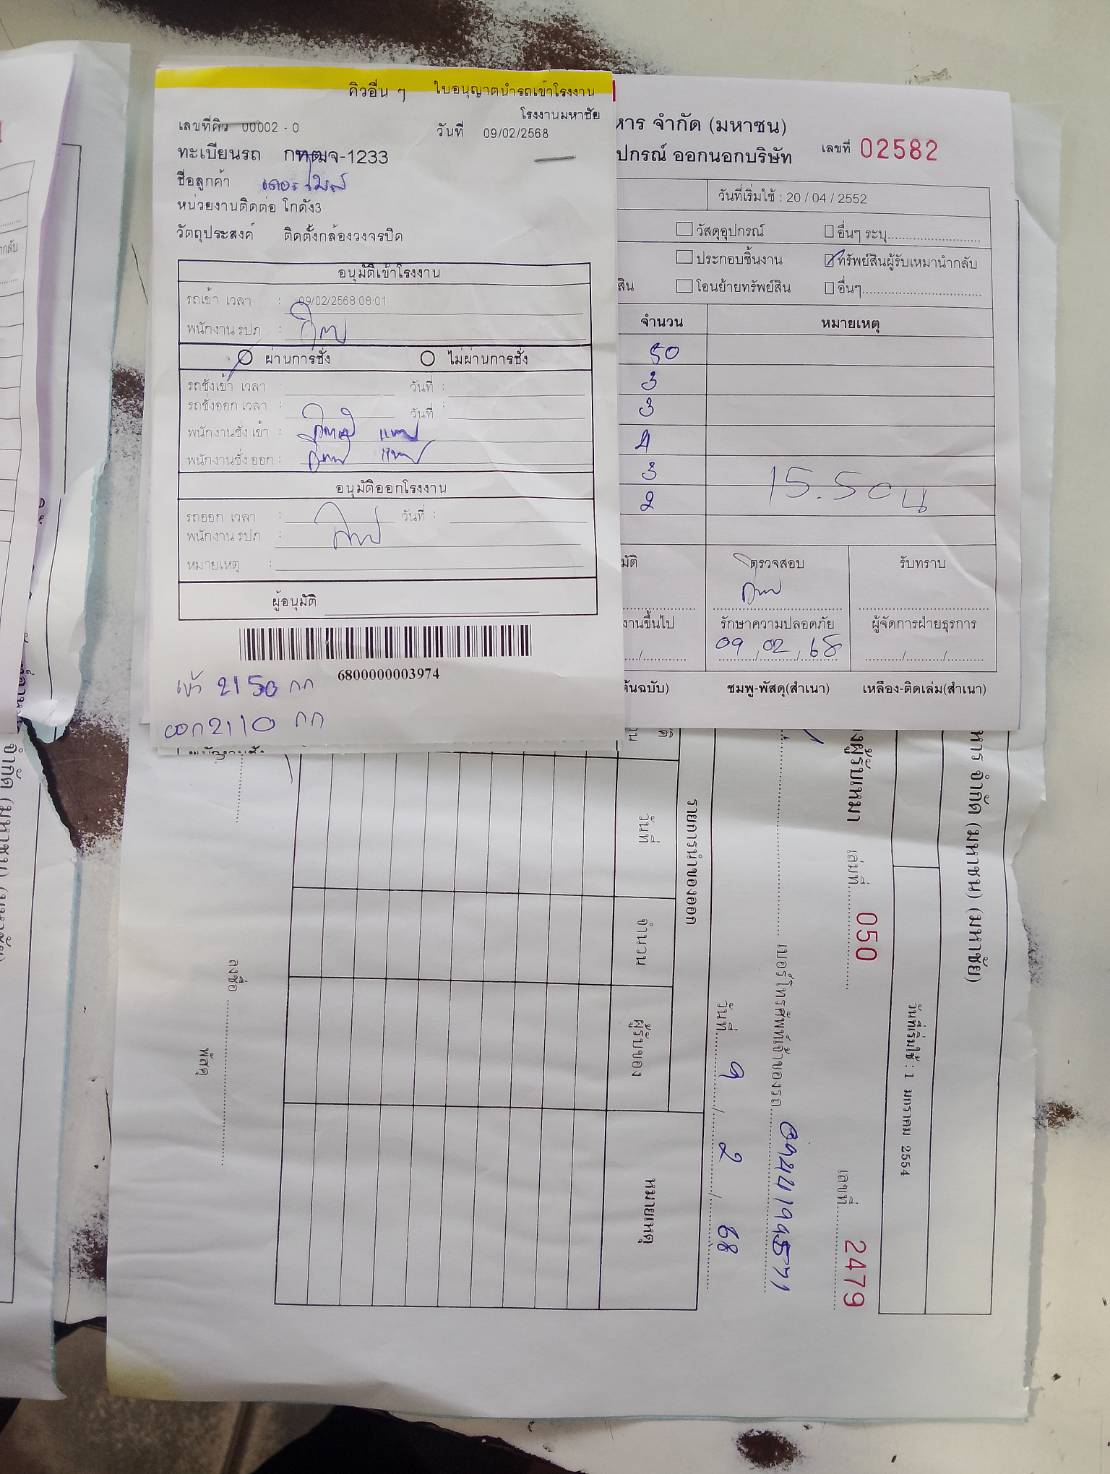 คิวอื่น ๆ ใบอนุญาตนำรถเข้าโรงงาน
โรงงานมหาชัย
เลขที่คิว 00002 - 0 วันที่ 09/02/2568
ทะเบียนรถ -1233
ชื่อลูกค้า
หน่วยงานติดต่อ โกดัง3
วัตถุประสงค์ ติดตั้งกล้องวงจรปิด
อนุมัติเข้าโรงงาน
รถเข้า เวลา : 09/02/2568 08:01
พนักงาน รปภ. :
ผ่านการชั่ง ไม่ผ่านการชั่ง
รถชั่งเข้า เวลา : วันที่ :
รถชั่งออก เวลา : วันที่ :
พนักงานชั่ง เข้า :
พนักงานชั่ง ออก :
อนุมัติออกโรงงาน
รถออก เวลา : วันที่ :
พนักงาน รปภ. :
หมายเหตุ :
ผู้อนุมัติ
6800000003974
เข้า 2150 กก
ออก 2110 กก
หาร จำกัด (มหาชน)
ปกรณ์ ออกนอกบริษัท เลขที่ 02582
วันที่เริ่มใช้ : 20 / 04 / 2552
วัสดุอุปกรณ์ อื่นๆ ระบุ
ประกอบชิ้นงาน ทรัพย์สินผู้รับเหมานำกลับ
สิน โอนย้ายทรัพย์สิน อื่นๆ
จำนวน หมายเหตุ
50
3
3
4
3
2
15.50 น
มัติ ตรวจสอบ รับทราบ
งานขึ้นไป รักษาความปลอดภัย ผู้จัดการฝ่ายธุรการ
09 / 02 / 68
ต้นฉบับ) ชมพู-พัสดุ(สำเนา) เหลือง-ติดเล่ม(สำเนา)
หาร จำกัด (มหาชน) (มหาชัย)
วันที่เริ่มใช้ : 1 มกราคม 2554
งผู้รับเหมา เล่มที่ 050 เลขที่ 2479
เบอร์โทรศัพท์เจ้าของรถ 0944199571
วันที่ 9 / 2 / 68
รายการนำของออก
วันที่ จำนวน ผู้รับของ หมายเหตุ
ลงชื่อ พัสดุ
จำกัด (มหาชน)